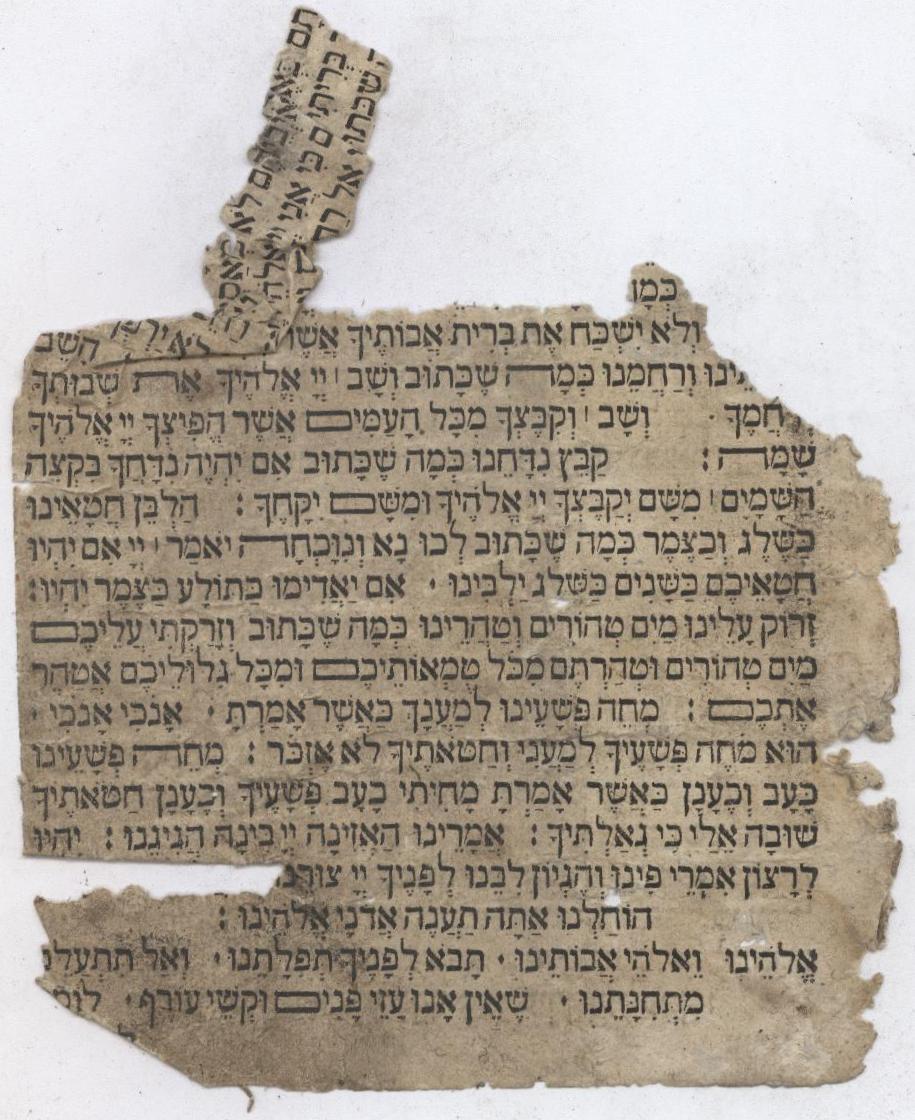 תם
בריתי ם כי אני יי אלהי
שכתו׳ אל רח
כְּמוֹ
וְלֹא יִשְׁכַּח אֶת בְּרִית אֲבוֹתֶיךָ אֲשֶׁר
הָשֵׁב
וְרַחֲמֵנוּ כְּמָה שֶׁכָּתוּב וְשָׁב ׀ יְיָ אֱלֹהֶיךָ אֶת שְׁבוּתְךָ
וְרִחֲמֶךָ · וְשָׁב ׀ וְקִבֶּצְךָ מִכָּל הָעַמִּים אֲשֶׁר הֱפִיצְךָ יְיָ אֱלֹהֶיךָ
שָׁמָּה : קַבֵּץ נִדָּחֵנוּ כְּמָה שֶׁכָּתוּב אִם יִהְיֶה נִדַּחֲךָ בִּקְצֵה
הַשָּׁמָיִם ׀ מִשָּׁם יְקַבֶּצְךָ יְיָ אֱלֹהֶיךָ וּמִשָּׁם יִקָּחֶךָ : הַלְבֵּן חֲטָאֵינוּ
כַּשֶּׁלֶג וְכַצֶּמֶר כְּמָה שֶׁכָּתוּב לְכוּ נָא וְנִוָּכְחָה יֹאמַר ׀ יְיָ אִם יִהְיוּ
חֲטָאֵיכֶם כַּשָּׁנִים כַּשֶּׁלֶג יַלְבִּינוּ · אִם יַאְדִּימוּ כַתּוֹלָע כַּצֶּמֶר יִהְיוּ:
זְרוֹק עָלֵינוּ מַיִם טְהוֹרִים וְטַהֲרֵינוּ כְּמָה שֶׁכָּתוּב וְזָרַקְתִּי עֲלֵיכֶם
מַיִם טְהוֹרִים וּטְהַרְתֶּם מִכֹּל טֻמְאוֹתֵיכֶם וּמִכָּל גִּלּוּלֵיכֶם אֲטַהֵר
אֶתְכֶם : מְחֵה פְשָׁעֵינוּ לְמַעֲנָךְ כַּאֲשֶׁר אָמַרְתָּ · אָנֹכִי אָנֹכִי ·
הוּא מֹחֶה פְשָׁעֶיךָ לְמַעֲנִי וְחַטֹּאתֶיךָ לֹא אֶזְכֹּר : מְחֵה פְשָׁעֵינוּ
כָּעָב וְכֶעָנָן כַּאֲשֶׁר אָמַרְתָּ מָחִיתִי כָעָב פְּשָׁעֶיךָ וְכֶעָנָן חַטֹּאתֶיךָ
שׁוּבָה אֵלַי כִּי גְאַלְתִּיךָ : אֲמָרֵינוּ הַאֲזִינָה יְיָ בִּינָה הֲגִיגֵנוּ : יִהְיוּ
לְרָצוֹן אִמְרֵי פִינוּ וְהֶגְיוֹן לִבֵּנוּ לְפָנֶיךָ יְיָ צוּרֵנוּ
הוֹחָלְנוּ אַתָּה תַעֲנֶה אֲדֹנָי אֱלֹהֵינוּ :
אֱלֹהֵינוּ וֵאלֹהֵי אֲבוֹתֵינוּ · תָּבֹא לְפָנֶיךָ תְּפִלָּתֵנוּ · וְאַל תִּתְעַלַּם
מִתְּחִנָּתֵנוּ · שֶׁאֵין אָנוּ עַזֵּי פָנִים וּקְשֵׁי עוֹרֶף ·